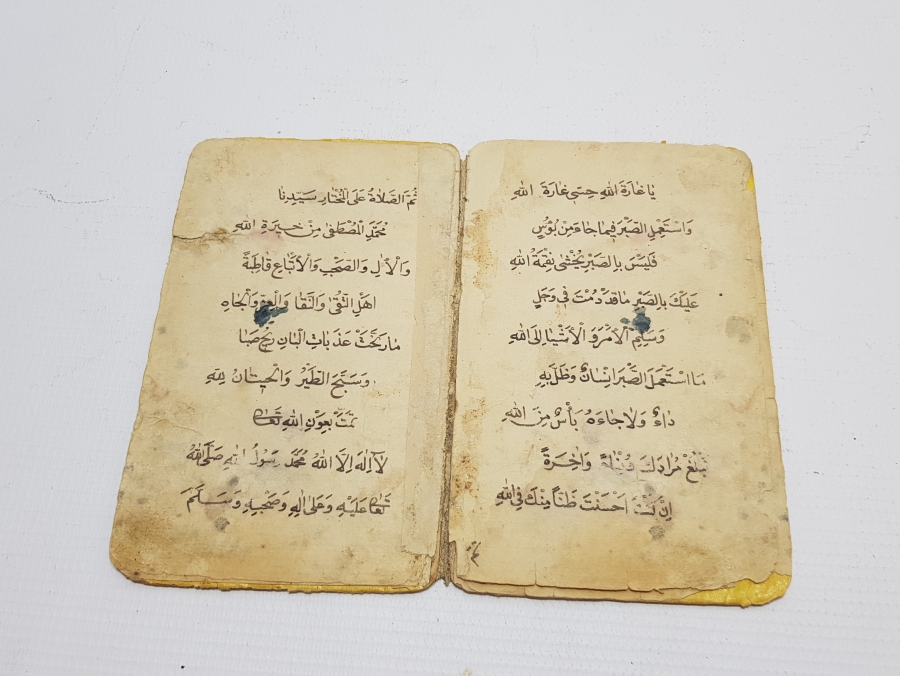 يا غارَةَ اللهِ حِتى غارَةَ الله
وَاسْتَعْمِلِ الصَّبْرَ فِيما جاءَ مِنْ بُؤْسٍ
فَلَيْسَ بِالصَّبْرِ يُخْشٰى نِقْمَةُ اللهِ
عَلَيْكَ بِالصَّبْرِ ما قَدْ دُمْتَ فِي وَجَلٍ
وَسَلِّمِ الْاَمْرَ وَ الْاَشْيا اِلَى اللهِ
مَا اسْتَعْمَلَ الصَّبْرَ اِنْسانٌ وَظَلَّ بِهِ
داءٌ وَلا جاءَهُ بَأْسٌ مِنَ اللهِ
تَبْلُغْ مُرادَكَ وَاٰخِرَةً
اِنْ كُنْتَ اَحْسَنْتَ ظَنّاً مِنْكَ فِي اللهِ
ثُمَّ الصَّلاةُ عَلَى الْمُخْتارِ سَيِّدِنا
مُحَمَّدِ الْمُصْطَفٰى مِنْ خِيرَةِ اللهِ
وَالْاٰلِ وَالصَّحْبِ وَالْاَتْباعِ قاطِبَةً
اَهْلِ التُّقٰى وَالنَّقا وَالْعِزِّ وَالْجاهِ
ما رَنَّحَتْ عَذَباتِ الْبانِ رِيحُ صَبا
وَسَبَّحَ الطَّيْرُ وَالْحِيتانُ لِلّٰهِ
تَمَّتْ بِعَوْنِ اللهِ تَعَالٰى
لَا اِلٰهَ اِلَّا اللهُ مُحَمَّدٌ رَسُولُ اللهِ صَلَّى اللهُ
تَعَالٰى عَلَيْهِ وَعَلٰى اٰلِهِ وَصَحْبِهِ وَسَلَّمَ